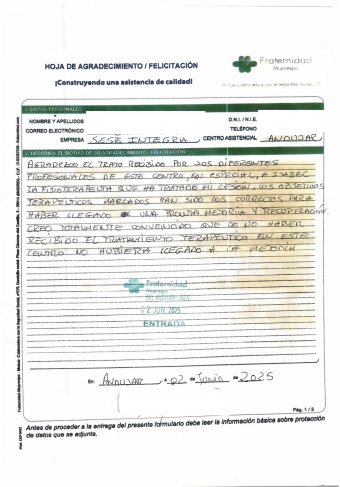 HOJA DE AGRADECIMIENTO / FELICITACIÓN
Fraternidad
Muprespa
¡Construyendo una asistencia de calidad!
1. DATOS PERSONALES
NOMBRE Y APELLIDOS
D.N.I. / N.I.E.
CORREO ELECTRÓNICO
TELÉFONO
EMPRESA SESÉ INTEGRA
CENTRO ASISTENCIAL ANDUJAR
2. DESCRIBA EL MOTIVO DE SU AGRADECIMIENTO / FELICITACIÓN
AGRADEZCO EL TRATO RECIBIDO POR LOS DIFERENTES
PROFESIONALES DE ESTE CENTRO, EN ESPECIAL, A ISABEL
LA FISIOTERAPEUTA QUE HA TRATADO MI LESIÓN, LOS OBJETIVOS
TERAPEUTICOS MARCADOS HAN SIDO LOS CORRECTOS PARA
HABER LLEGADO A UNA PRONTA MEJORIA Y RECUPERACIÓN
CREO TOTALMENTE CONVENCIDO QUE DE NO HABER
RECIBIDO EL TRATAMIENTO TERAPEUTICO EN ESTE
CENTRO NO HUBIERA LLEGADO A LA MEJORIA
Fraternidad
Muprespa
02 JUN 2025
ENTRADA
En: ANDUJAR, a 02 de Junio de 2025
Pág. 1 / 2
Antes de proceder a la entrega del presente formulario debe leer la información básica sobre protección
de datos que se adjunta.